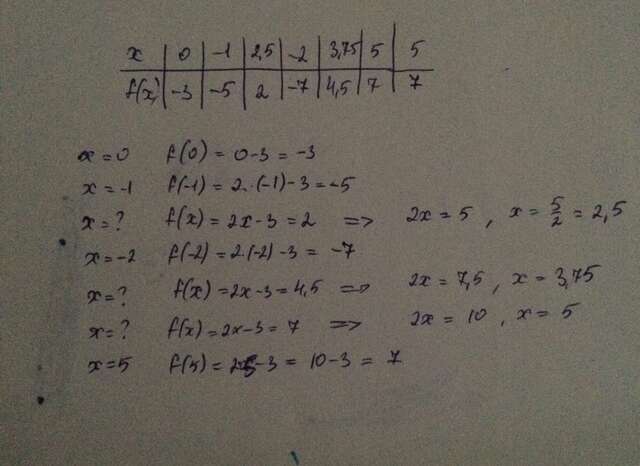 x | 0 | -1 | 2,5 | -2 | 3,75 | 5 | 5
f(x) | -3 | -5 | 2 | -7 | 4,5 | 7 | 7
x = 0 f(0) = 0-3 = -3
x = -1 f(-1) = 2·(-1)-3 = -5
x = ? f(x) = 2x-3 = 2 => 2x = 5 , x = 5/2 = 2,5
x = -2 f(-2) = 2·(-2)-3 = -7
x = ? f(x) = 2x-3 = 4,5 => 2x = 7,5 , x = 3,75
x = ? f(x) = 2x-3 = 7 => 2x = 10 , x = 5
x = 5 f(5) = 2·5-3 = 10-3 = 7